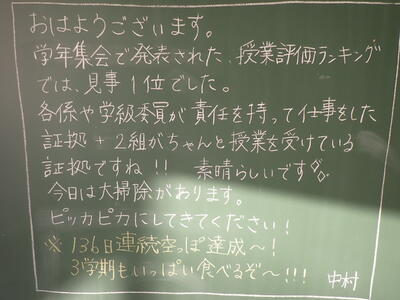 おはようございます。
学年集会で発表された、授業評価ランキング
では、見事1位でした。
各係や学級委員が責任を持って仕事をした
証拠+2組がちゃんと授業を受けている
証拠ですね!! 素晴らしいです
今日は大掃除があります。
ピッカピカにしてきてください!
※136日連続空っぽ達成〜!
3学期もいっぱい食べるぞ〜!!!
中村